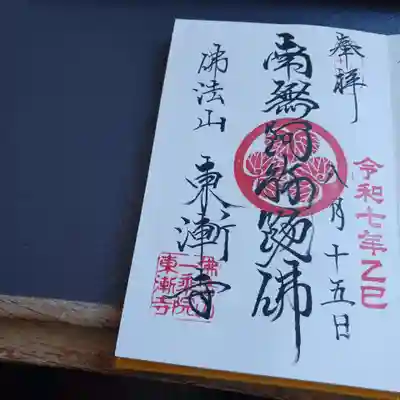 奉拝
令和七年乙巳
八月十五日
南無阿弥陀佛
佛法山
東漸寺
佛法山
一乗院
東漸寺